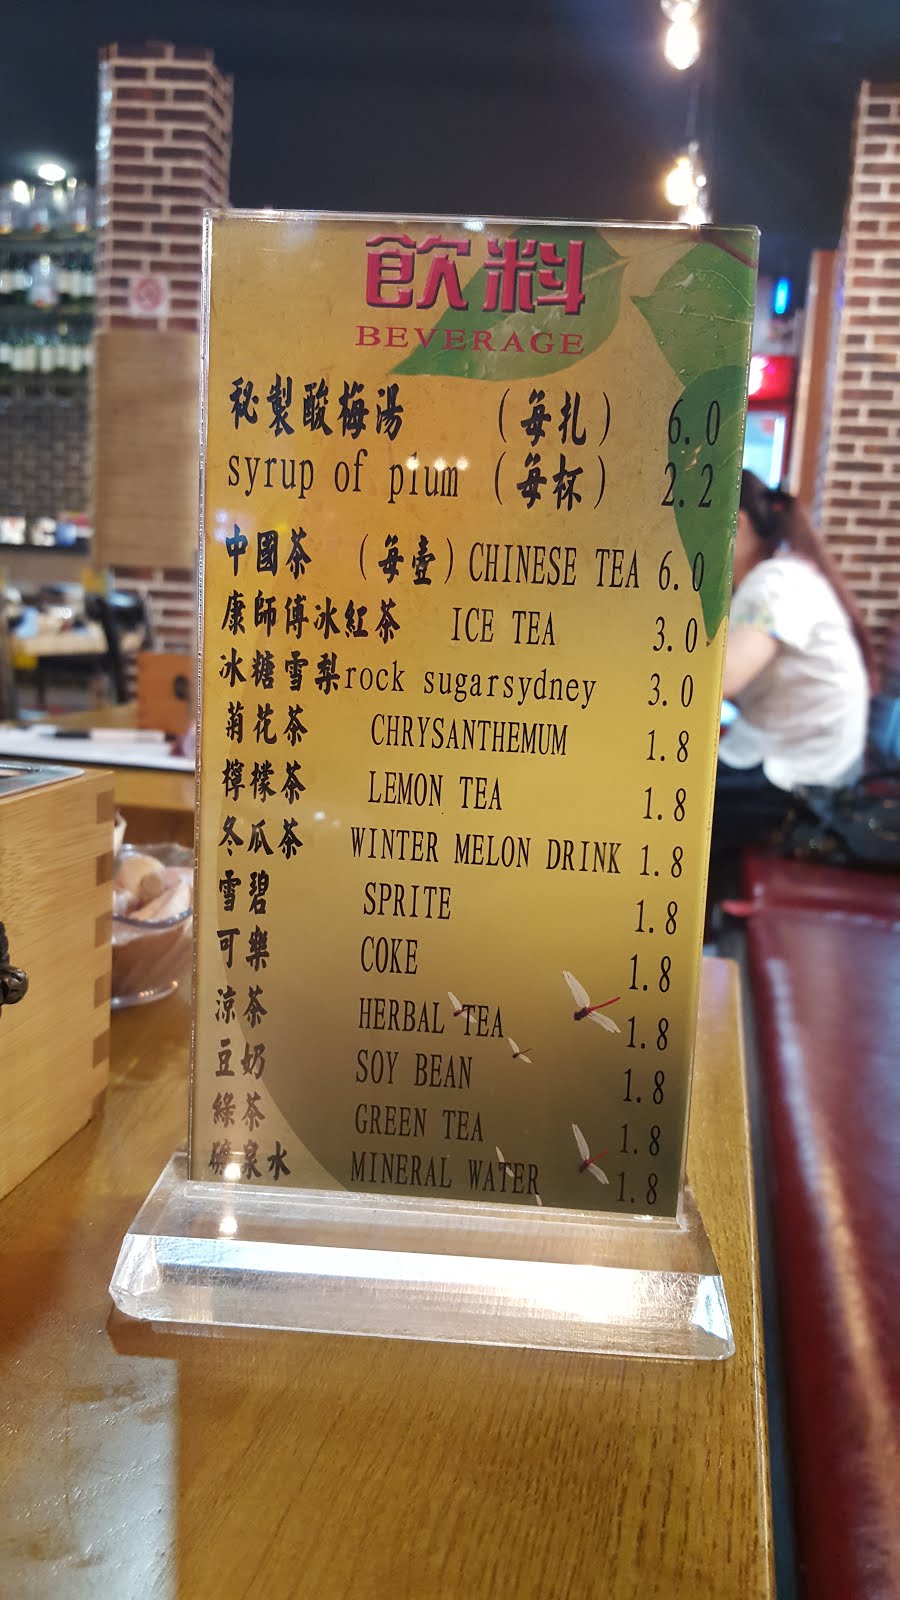 飲料
BEVERAGE
秘製酸梅湯 (每扎) 6.0
syrup of plum (每杯) 2.2
中國茶 (每壺) CHINESE TEA 6.0
康師傅冰紅茶 ICE TEA 3.0
冰糖雪梨 rock sugarsydney 3.0
菊花茶 CHRYSANTHEMUM 1.8
檸檬茶 LEMON TEA 1.8
冬瓜茶 WINTER MELON DRINK 1.8
雪碧 SPRITE 1.8
可樂 COKE 1.8
涼茶 HERBAL TEA 1.8
豆奶 SOY BEAN 1.8
綠茶 GREEN TEA 1.8
礦泉水 MINERAL WATER 1.8